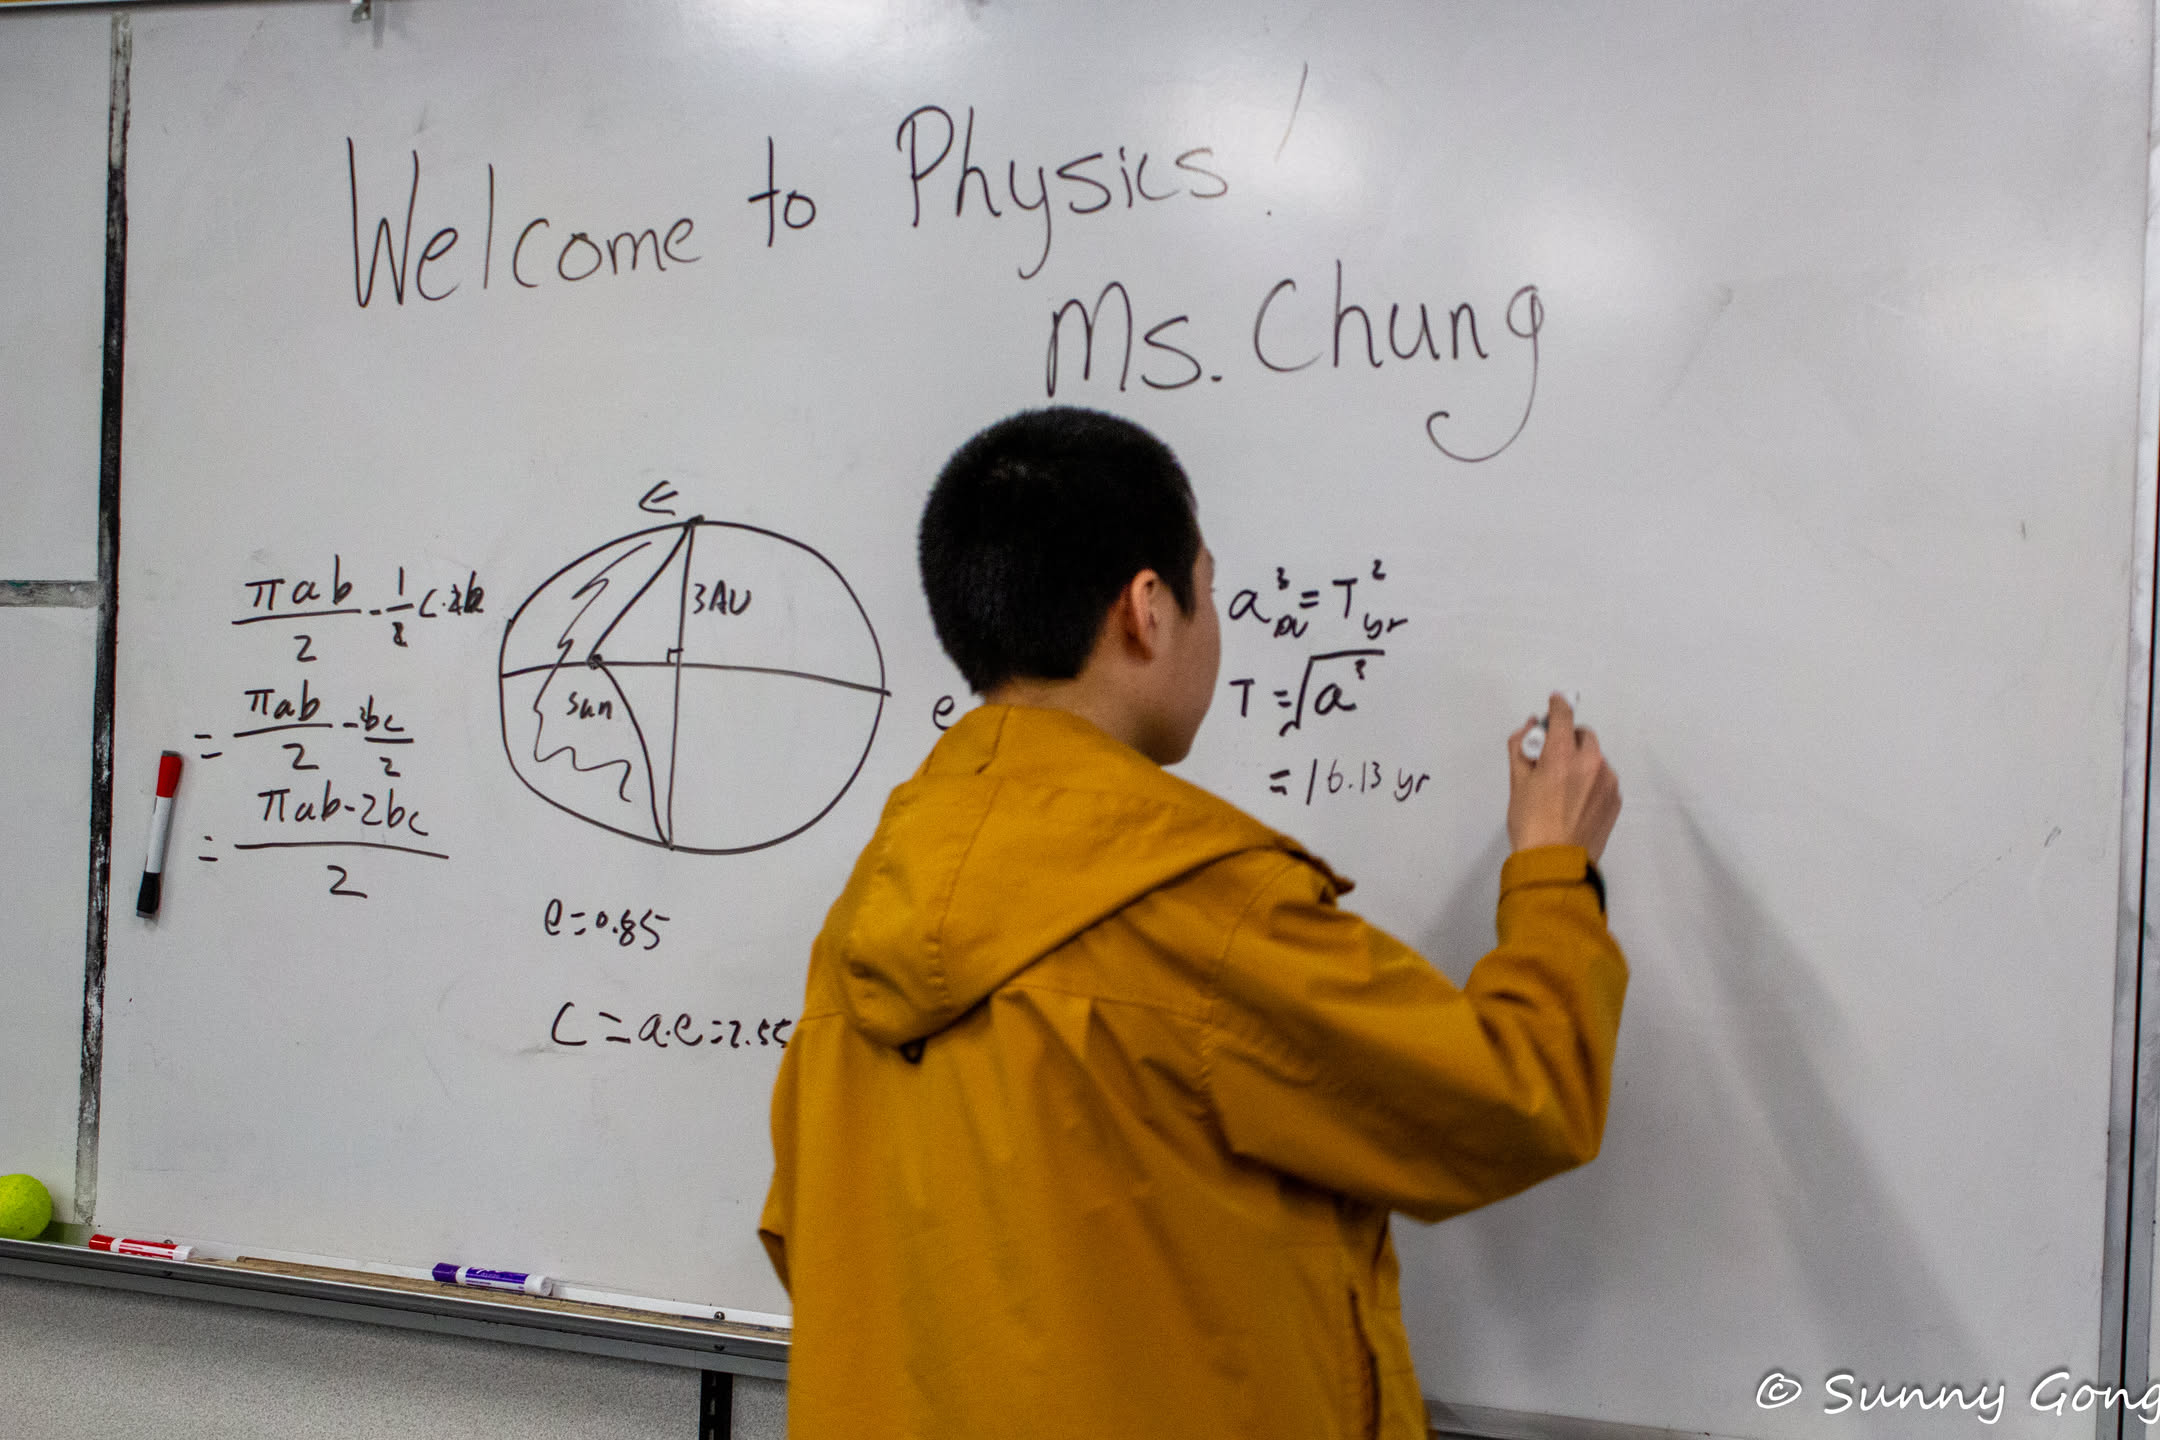 Welcome to Physics!
Ms. Chung
πab/2 - 1/2 c·2b
= πab/2 - 2bc/2
= πab-2bc/2
3AU
sun
e=0.85
C=a.e=2.55
e
a³AU=T²yr
T=√a³
=16.13 yr
© Sunny Gong